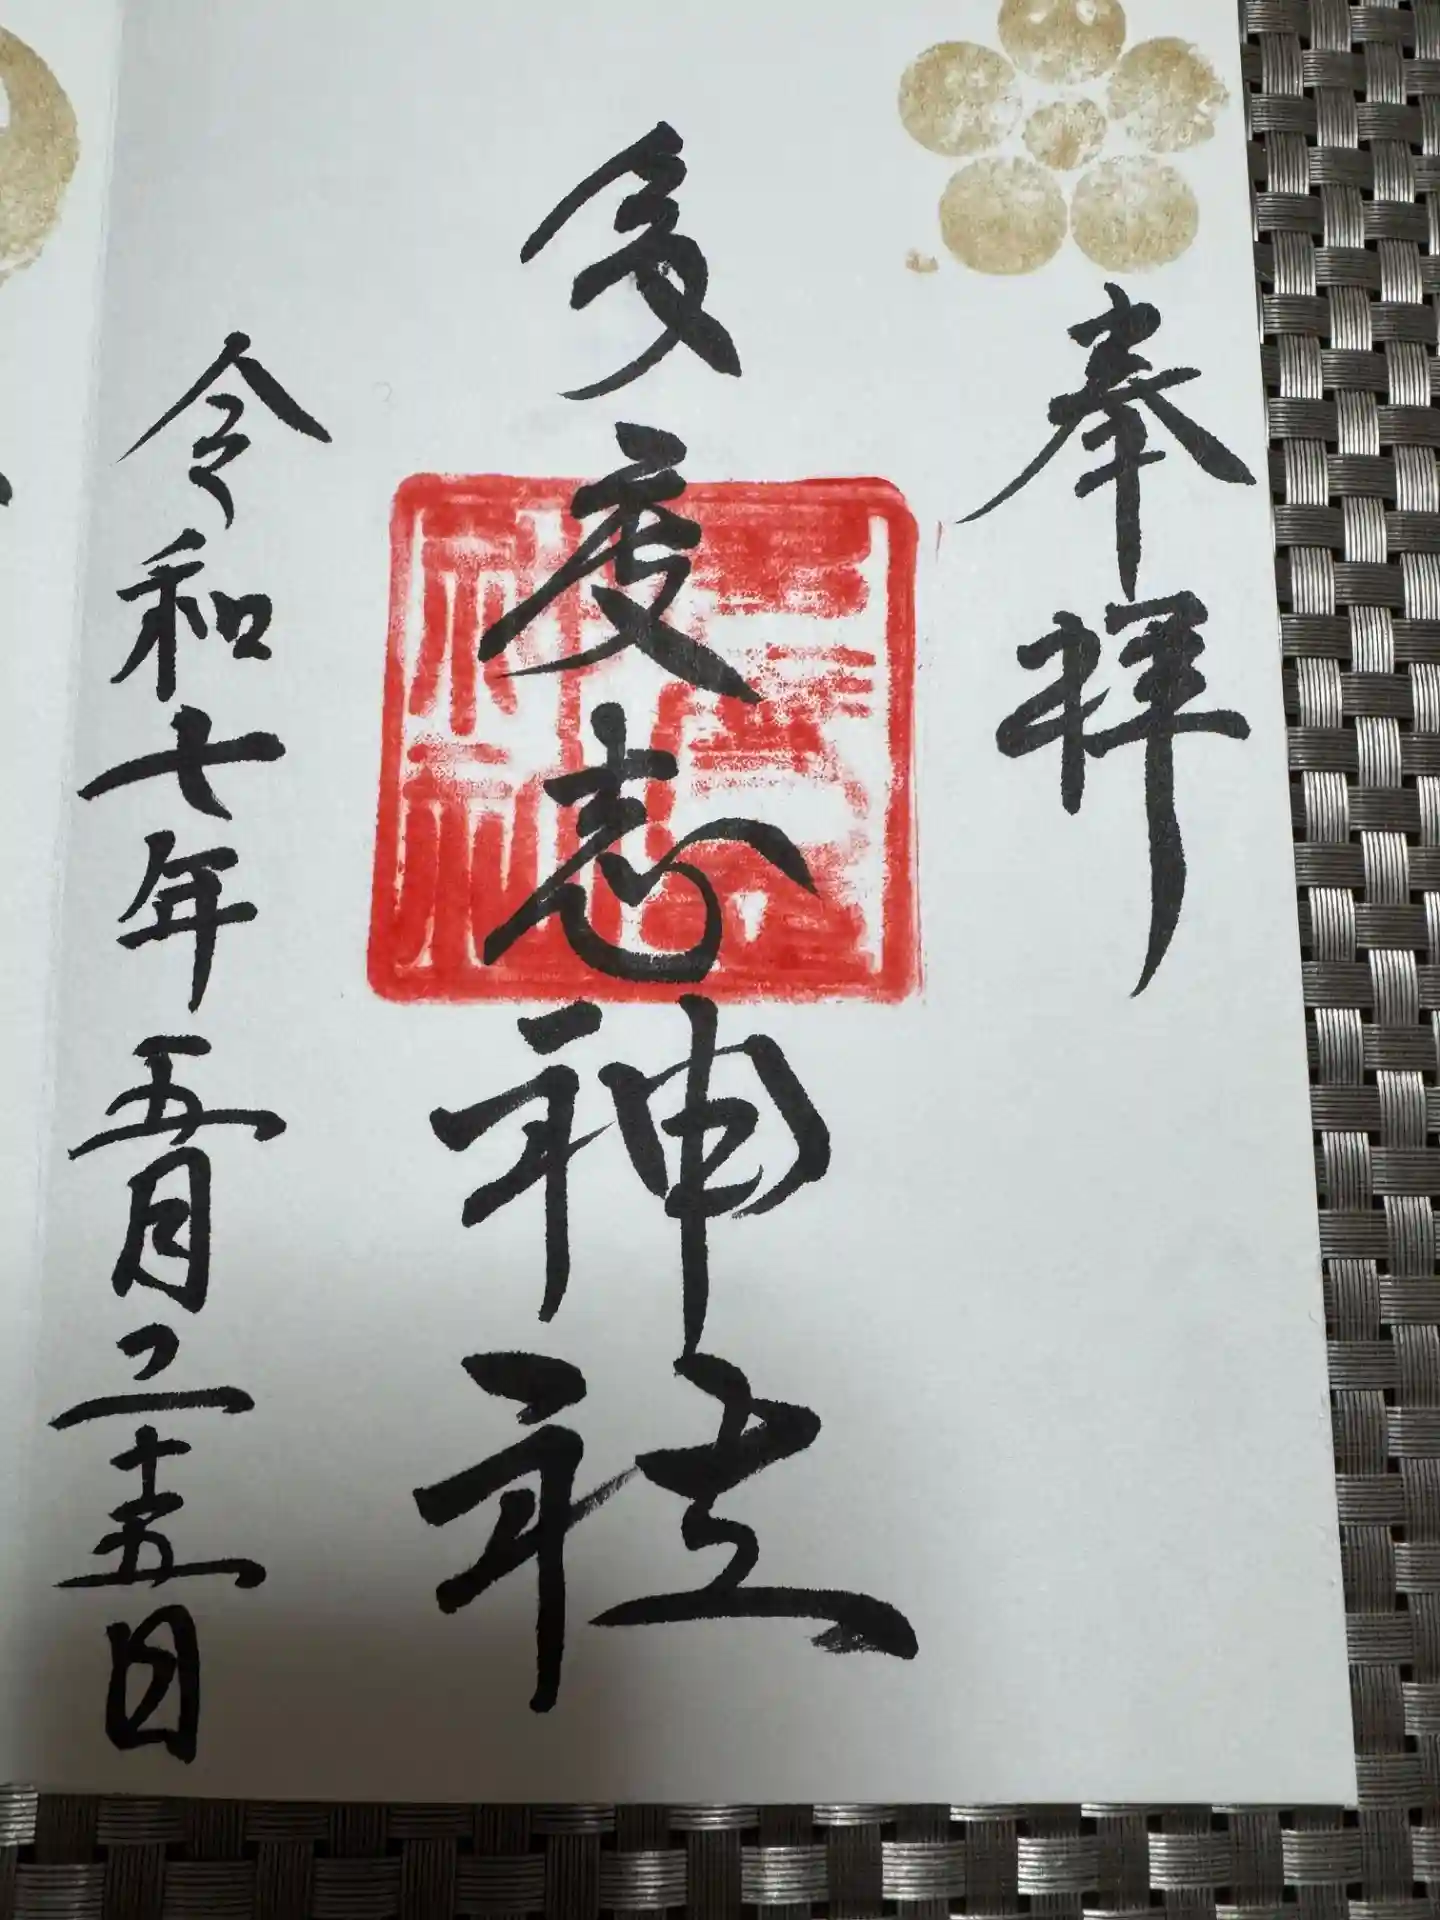 奉拝
多度志神社
令和七年五月二十五日